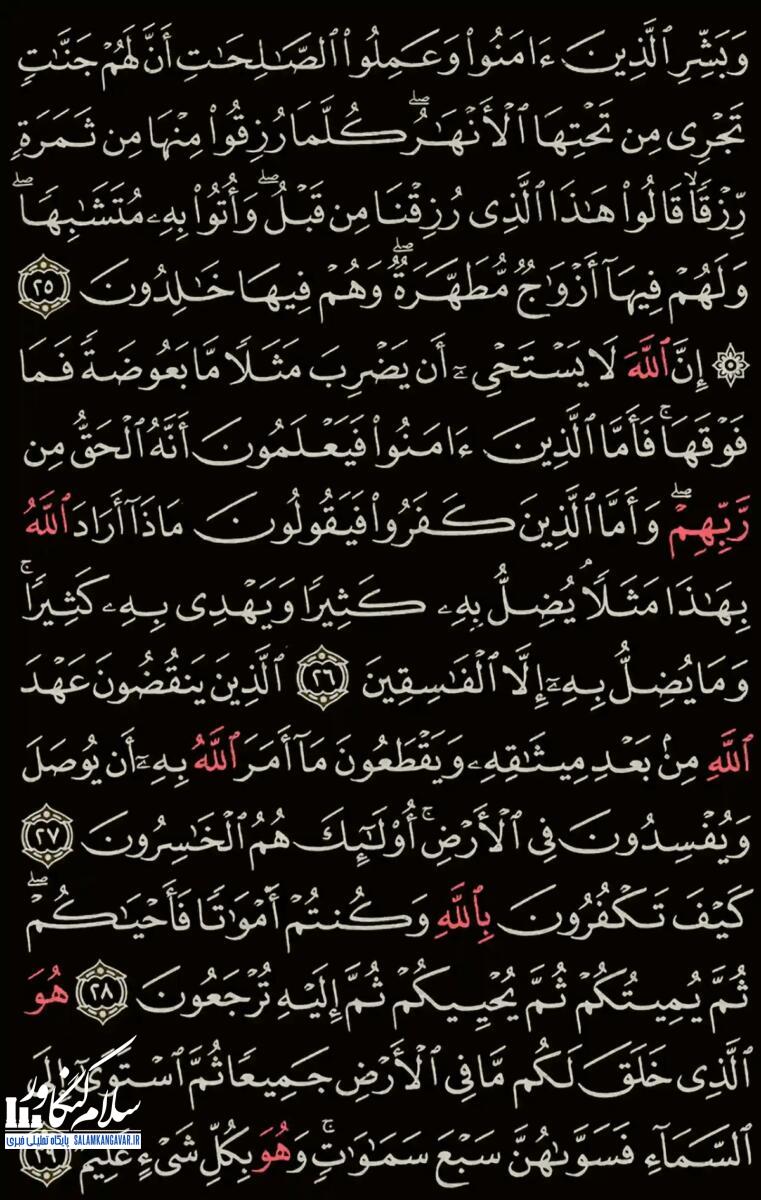 وَبَشِّرِ ٱلَّذِينَ ءَامَنُوا۟ وَعَمِلُوا۟ ٱلصَّـٰلِحَـٰتِ أَنَّ لَهُمْ جَنَّـٰتٍ
تَجْرِى مِن تَحْتِهَا ٱلْأَنْهَـٰرُ ۖ كُلَّمَا رُزِقُوا۟ مِنْهَا مِن ثَمَرَةٍ
رِّزْقًا ۙ قَالُوا۟ هَـٰذَا ٱلَّذِى رُزِقْنَا مِن قَبْلُ ۖ وَأُتُوا۟ بِهِۦ مُتَشَـٰبِهًا ۖ
وَلَهُمْ فِيهَآ أَزْوَٰجٌ مُّطَهَّرَةٌ ۖ وَهُمْ فِيهَا خَـٰلِدُونَ ٢٥
۞ إِنَّ ٱللَّهَ لَا يَسْتَحْىِۦٓ أَن يَضْرِبَ مَثَلًا مَّا بَعُوضَةً فَمَا
فَوْقَهَا ۚ فَأَمَّا ٱلَّذِينَ ءَامَنُوا۟ فَيَعْلَمُونَ أَنَّهُ ٱلْحَقُّ مِن
رَّبِّهِمْ ۖ وَأَمَّا ٱلَّذِينَ كَفَرُوا۟ فَيَقُولُونَ مَاذَآ أَرَادَ ٱللَّهُ
بِهَـٰذَا مَثَلًا ۘ يُضِلُّ بِهِۦ كَثِيرًا وَيَهْدِى بِهِۦ كَثِيرًا ۚ
وَمَا يُضِلُّ بِهِۦٓ إِلَّا ٱلْفَـٰسِقِينَ ٢٦ ٱلَّذِينَ يَنقُضُونَ عَهْدَ
ٱللَّهِ مِنۢ بَعْدِ مِيثَـٰقِهِۦ وَيَقْطَعُونَ مَآ أَمَرَ ٱللَّهُ بِهِۦٓ أَن يُوصَلَ
وَيُفْسِدُونَ فِى ٱلْأَرْضِ ۚ أُو۟لَـٰٓئِكَ هُمُ ٱلْخَـٰسِرُونَ ٢٧
كَيْفَ تَكْفُرُونَ بِٱللَّهِ وَكُنتُمْ أَمْوَٰتًا فَأَحْيَـٰكُمْ ۖ
ثُمَّ يُمِيتُكُمْ ثُمَّ يُحْيِيكُمْ ثُمَّ إِلَيْهِ تُرْجَعُونَ ٢٨ هُوَ
ٱلَّذِى خَلَقَ لَكُم مَّا فِى ٱلْأَرْضِ جَمِيعًا ثُمَّ ٱسْتَوَىٰٓ إِلَى
ٱلسَّمَآءِ فَسَوَّىٰهُنَّ سَبْعَ سَمَـٰوَٰتٍ ۚ وَهُوَ بِكُلِّ شَىْءٍ عَلِيمٌ ٢٩
سلام کنگاور
پایگاه تحلیلی خبری SALAMKANGAVAR.IR